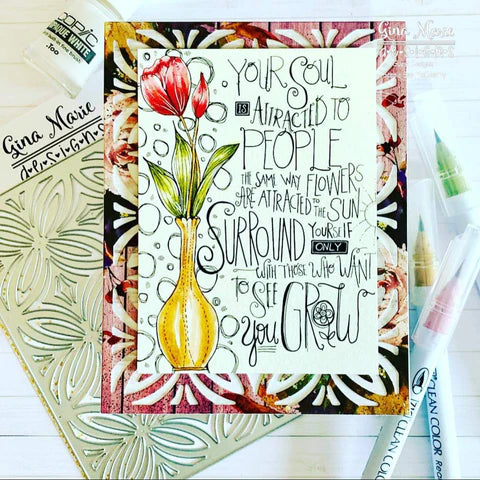 COPIC
OPAQUE WHITE
.Too
Gina Marie
DESIGNS
Gina Marie
DESIGNS
YOUR SOUL
IS ATTRACTED TO
PEOPLE
THE SAME WAY FLOWERS
ARE ATTRACTED TO THE SUN
SURROUND YOURSELF
ONLY
WITH THOSE WHO WANT
TO SEE
you GROW
CLEAN COLOR Rea
CLEAN COLOR